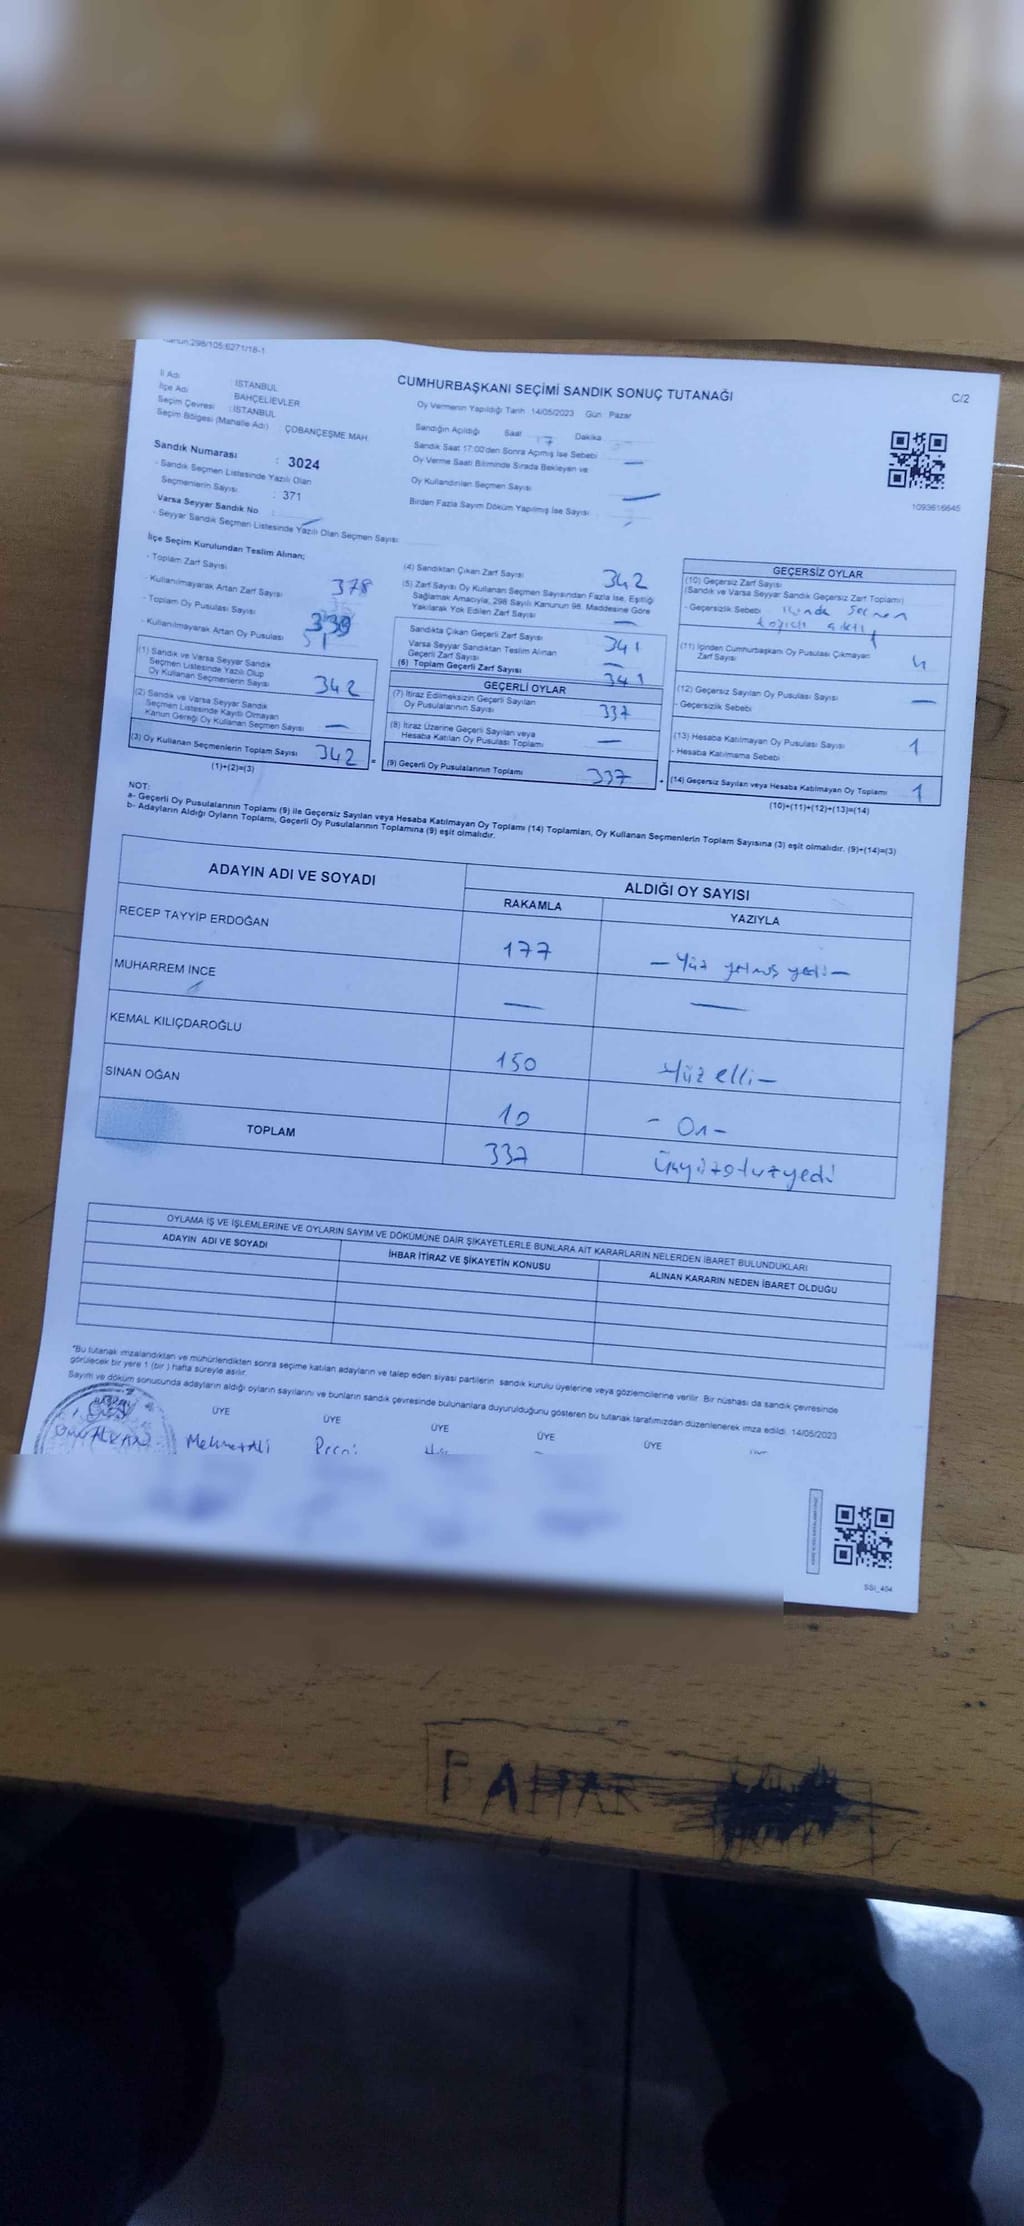 Kanun:298/105;6271/18-1
CUMHURBAŞKANI SEÇİMİ SANDIK SONUÇ TUTANAĞI
C/2
İl Adı : İSTANBUL
İlçe Adı BAHÇELİEVLER
Seçim Çevresi : İSTANBUL
Seçim Bölgesi (Mahalle Adı) ÇOBANÇEŞME MAH.
Sandık Numarası : 3024
- Sandık Seçmen Listesinde Yazılı Olan
Seçmenlerin Sayısı : 371
Varsa Seyyar Sandık No :
- Seyyar Sandık Seçmen Listesinde Yazılı Olan Seçmen Sayısı
Oy Vermenin Yapıldığı Tarih 14/05/2023 Gün : Pazar
Sandığın Açıldığı Saat 17 Dakika
Sandık Saat 17:00'den Sonra Açılmış İse Sebebi —
Oy Verme Saati Bitiminde Sırada Bekleyen ve
Oy Kullandırılan Seçmen Sayısı —
Birden Fazla Sayım Döküm Yapılmış İse Sayısı
1093616645
İlçe Seçim Kurulundan Teslim Alınan;
- Toplam Zarf Sayısı 378
- Kullanılmayarak Artan Zarf Sayısı
- Toplam Oy Pusulası Sayısı
- Kullanılmayarak Artan Oy Pusulası
(1) Sandık ve Varsa Seyyar Sandık
Seçmen Listesinde Yazılı Olup
Oy Kullanan Seçmenlerin Sayısı 342
(2) Sandık ve Varsa Seyyar Sandık
Seçmen Listesinde Kayıtlı Olmayan
Kanun Gereği Oy Kullanan Seçmen Sayısı —
(3) Oy Kullanan Seçmenlerin Toplam Sayısı 342 =
(1)+(2)=(3)
(4) Sandıktan Çıkan Zarf Sayısı 342
(5) Zarf Sayısı Oy Kullanan Seçmen Sayısından Fazla İse, Eşitliği
Sağlamak Amacıyla, 298 Sayılı Kanunun 98. Maddesine Göre
Yakılarak Yok Edilen Zarf Sayısı —
Sandıkta Çıkan Geçerli Zarf Sayısı 341
Varsa Seyyar Sandıktan Teslim Alınan
Geçerli Zarf Sayısı —
(6) Toplam Geçerli Zarf Sayısı 341
GEÇERLİ OYLAR
(7) İtiraz Edilmeksizin Geçerli Sayılan
Oy Pusulalarının Sayısı 337
(8) İtiraz Üzerine Geçerli Sayılan veya
Hesaba Katılan Oy Pusulası Toplamı —
(9) Geçerli Oy Pusulalarının Toplamı 337 +
GEÇERSİZ OYLAR
(10) Geçersiz Zarf Sayısı
(Sandık ve Varsa Seyyar Sandık Geçersiz Zarf Toplamı)
- Geçersizlik Sebebi içinde seçmen
çıktı 1
(11) İçinden Cumhurbaşkanı Oy Pusulası Çıkmayan
Zarf Sayısı 4
(12) Geçersiz Sayılan Oy Pusulası Sayısı —
- Geçersizlik Sebebi
(13) Hesaba Katılmayan Oy Pusulası Sayısı 1
- Hesaba Katılmama Sebebi
(14) Geçersiz Sayılan veya Hesaba Katılmayan Oy Toplamı 1
(10)+(11)+(12)+(13)=(14)
NOT:
a- Geçerli Oy Pusulalarının Toplamı (9) ile Geçersiz Sayılan veya Hesaba Katılmayan Oy Toplamı (14) Toplamları, Oy Kullanan Seçmenlerin Toplam Sayısına (3) eşit olmalıdır. (9)+(14)=(3)
b- Adayların Aldığı Oyların Toplamı, Geçerli Oy Pusulalarının Toplamına (9) eşit olmalıdır.
ADAYIN ADI VE SOYADI
ALDIĞI OY SAYISI
RAKAMLA YAZIYLA
RECEP TAYYİP ERDOĞAN 177 — Yüz yetmiş yedi —
MUHARREM İNCE — —
KEMAL KILIÇDAROĞLU 150 Yüz elli —
SİNAN OĞAN 10 - On -
TOPLAM 337 Üçyüzotuzyedi
OYLAMA İŞ VE İŞLEMLERİNE VE OYLARIN SAYIM VE DÖKÜMÜNE DAİR ŞİKAYETLERLE BUNLARA AİT KARARLARIN NELERDEN İBARET BULUNDUKLARI
ADAYIN ADI VE SOYADI İHBAR İTİRAZ VE ŞİKAYETİN KONUSU ALINAN KARARIN NEDEN İBARET OLDUĞU
*Bu tutanak imzalandıktan ve mühürlendikten sonra seçime katılan adayların ve talep eden siyasi partilerin sandık kurulu üyelerine veya gözlemcilerine verilir. Bir nüshası da sandık çevresinde
görülecek bir yere 1 (bir ) hafta süreyle asılır.
Sayım ve döküm sonucunda adayların aldığı oyların sayılarını ve bunların sandık çevresinde bulunanlara duyurulduğunu gösteren bu tutanak tarafımızdan düzenlenerek imza edildi. 14/05/2023
ÜYE ÜYE ÜYE ÜYE ÜYE
Mehmet Ali
SSİ_404
BAHAR